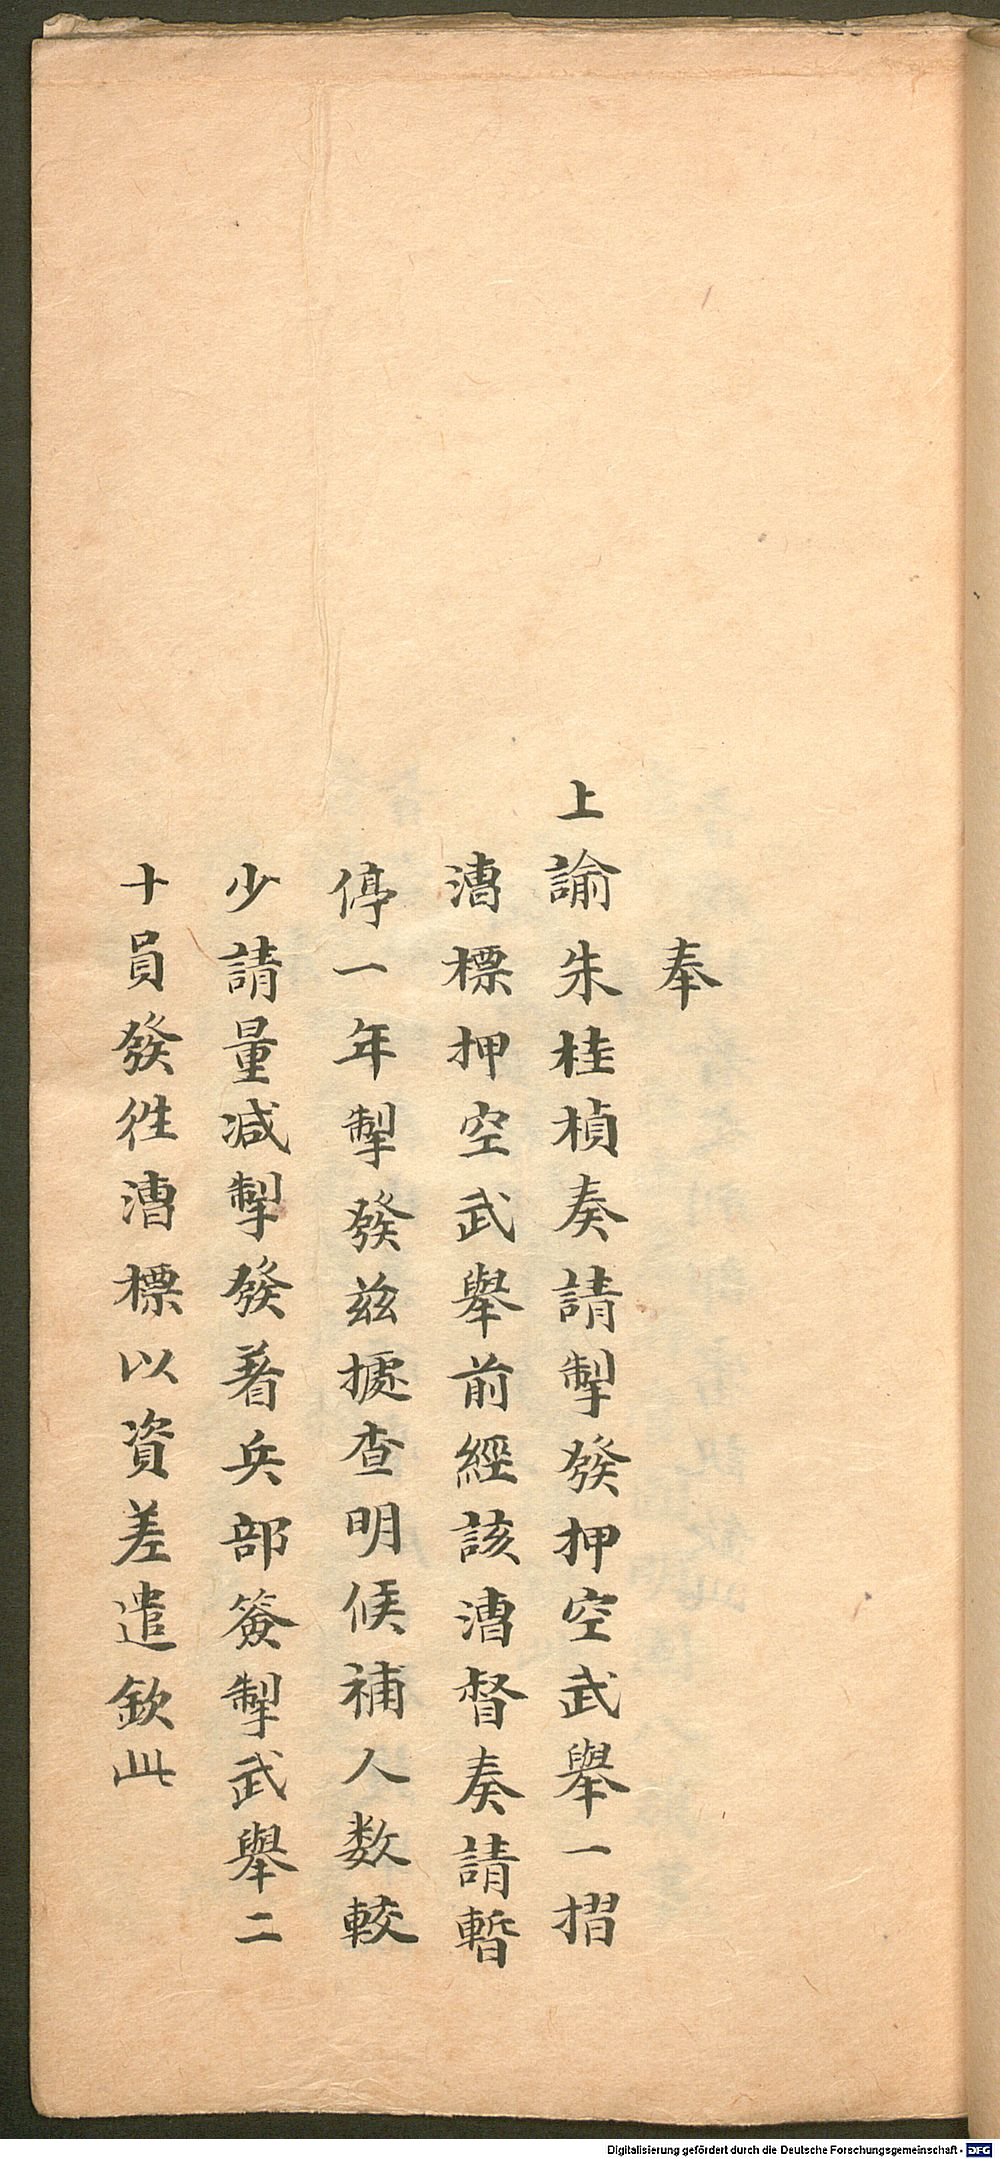 奉
上諭朱桂楨奏請掣發押空武舉一摺
漕標押空武舉前經該漕督奏請暫
停一年掣發兹據查明候補人数較
少請量减掣發著兵部簽掣武舉二
十員發徃漕標以資差遣欽此
Digitalisierung gefördert durch die Deutsche Forschungsgemeinschaft - DFG